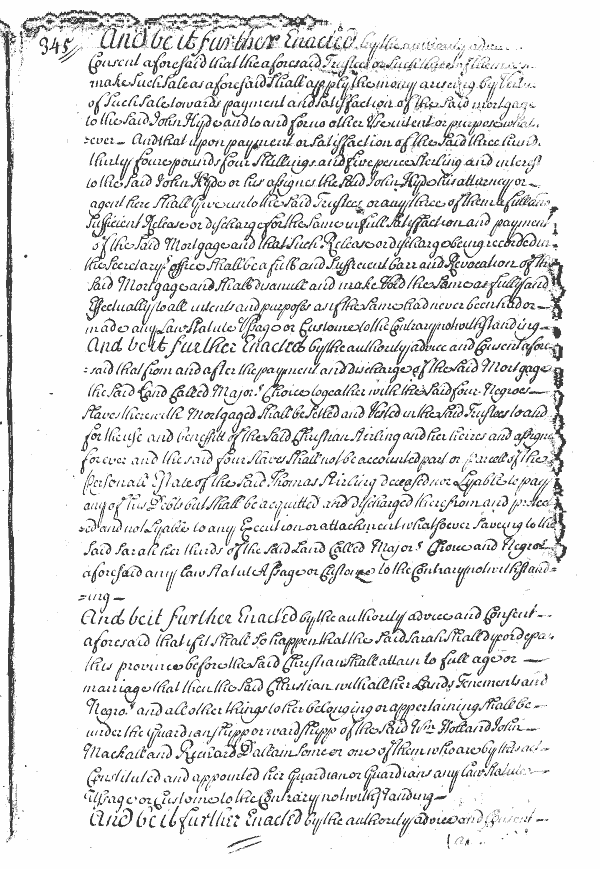 345 And be it further Enacted by the authority advice
Consent aforesaid that the aforesaid Trustees or Such three of them as
make Such Sale as aforesaid Shall apply the money ariseing by Virtue
of Such Sale towards payment and Satisfaction of the Said mortgage
to the Said John Hyde and to and for no other Use intent or purpose what
=ever — And that upon payment or Satisfaction of the Said three hund.
thirty four pounds four Shillings and five pence Sterling and interst
to the Said John Hyde or his assignes the Said John Hyde his atturney or
agent here Shall Give unto the Said Trustees or any three of them a full and
Sufficient Release or discharge for the Same in full Satisfaction and payment
of the Said Mortgage and that Such Release or discharge being recorded in
the Secretarys office Shall be a full and Sufficient barr and Revocation of the
Said Mortgage and Shall disanull and make Void the Same as fully and
Effectually to all intents and purposes as if the Same had never been had or
made any Law Statute Usage or Custome to the Contrary notwithstanding —
And be it further Enacted by the authority advice and Consent afore
=said that from and after the payment and discharge of the Said Mortgage
the Said Land Called Majors Choice together with the Said four Negroes
Slaves therewith Mortgaged Shall be Setled and Vested in the Said Trustees to and
for the use and benefitt of the Said Christian Stirling and her heires and assigns
for ever and the said four Slaves Shall not be accounted part or parcell of the
Personall Estate of the Said Thomas Stirling deceased nor Lyable to pay
any of his Debts but shall be acquitted and discharged therefrom and protect
=ed and not Lyable to any Execution or attachment whatsoever Saveing to the
Said Sarah her thirds of the Said Land Called Majors Choice and Negros
aforesaid any Law Statute Usage or Custome to the Contrary notwithstand=
=ing —
And be it further Enacted by the authority advice and Consent
aforesaid that if it Shall So happen that the Said Sarah Shall dye or depart
this province before the Said Christian shall attain to full age or —
marriage that then the Said Christian with all her Lands Tenements and
Negros and all other things to her belonging or appertaining Shall be
under the Guardianshipp or wardshipp of the Said Wm Holland John
Mackall and Richard Dallam Some or one of them who are by this act
Constituted and appointed her Guardian or Guardians any Law Statute
Usage or Custome to the Contrary notwithstanding —
And be it further Enacted by the authority advice and Consent